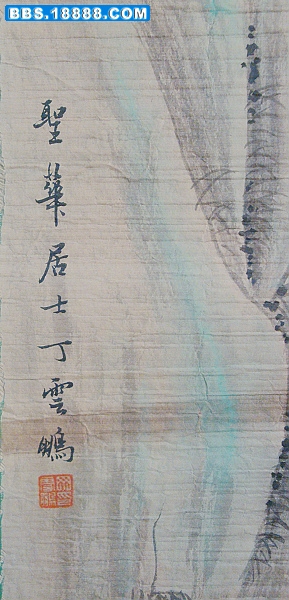 BBS.18888.COM
聖華居士丁雲鵬